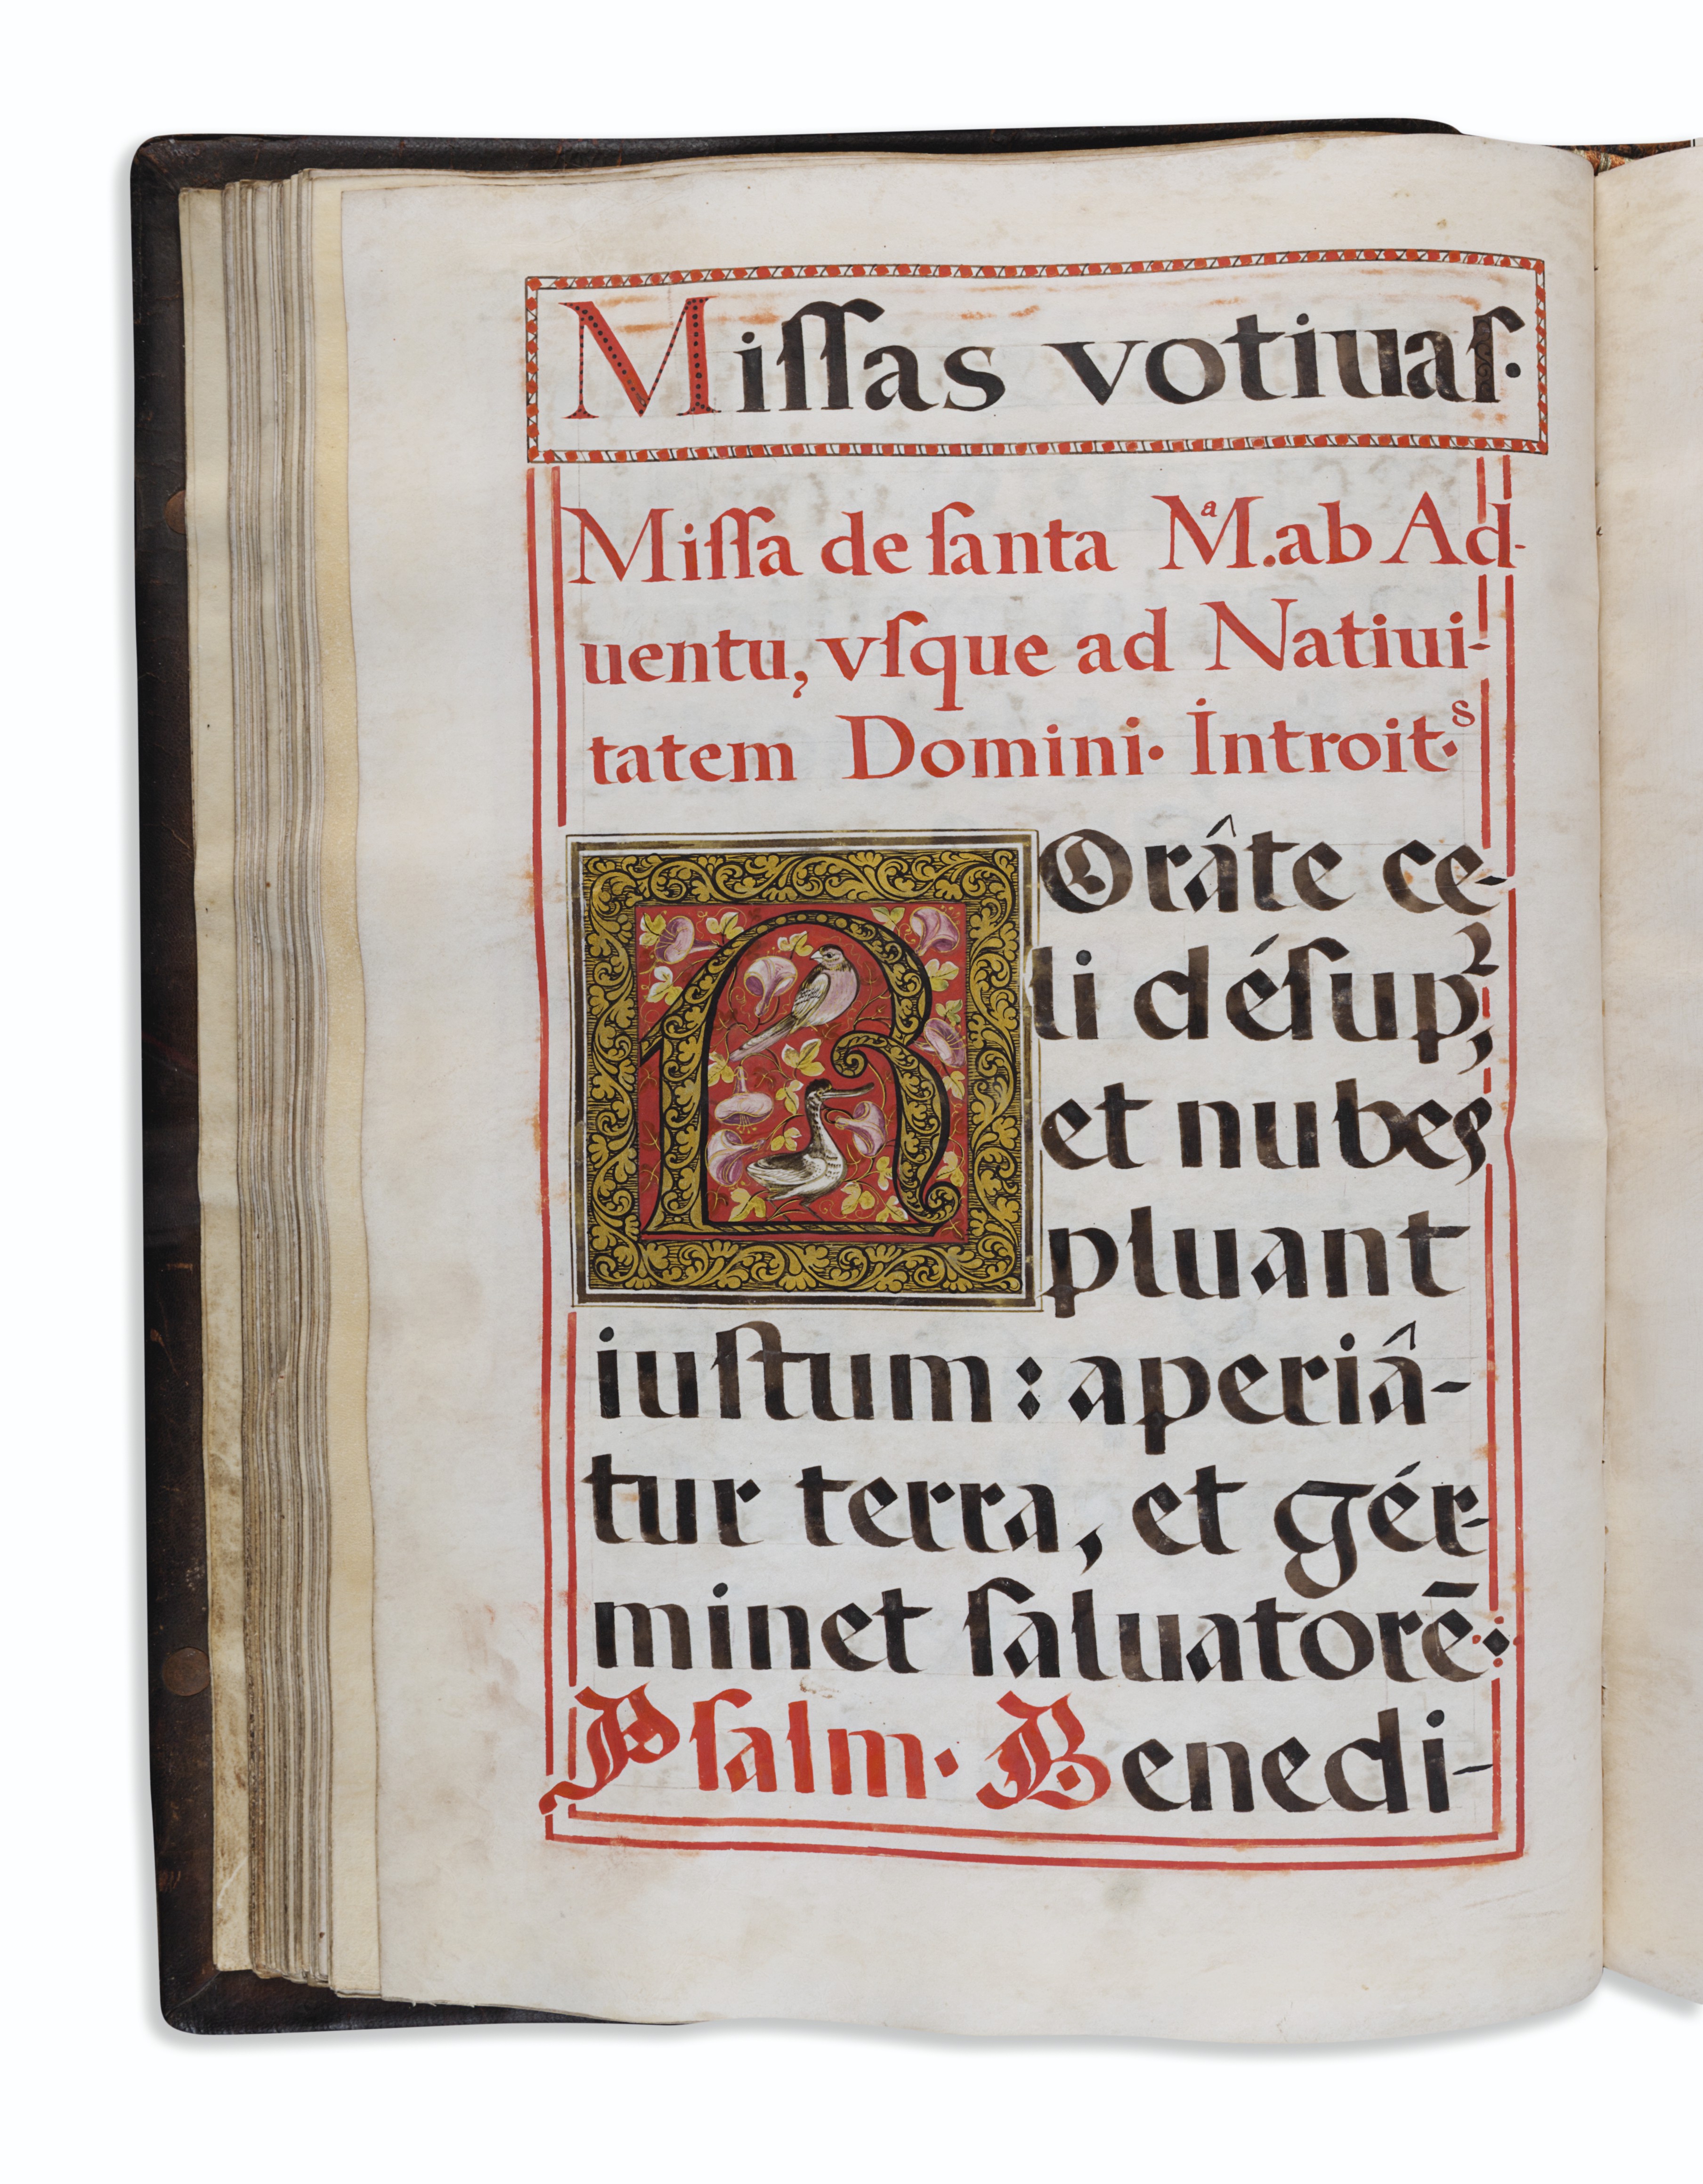 Miſſas votiuaſ.
Miſſa de ſanta Mª. ab Ad-
uentu, vſque ad Natiui-
tatem Domini. Introit.s
ROrâte ce-
li déſup²,
et nubes
pluant
iuſtum: aperiâ-
tur terra, et gér-
minet ſaluatorē:
Pſalm. Benedi-